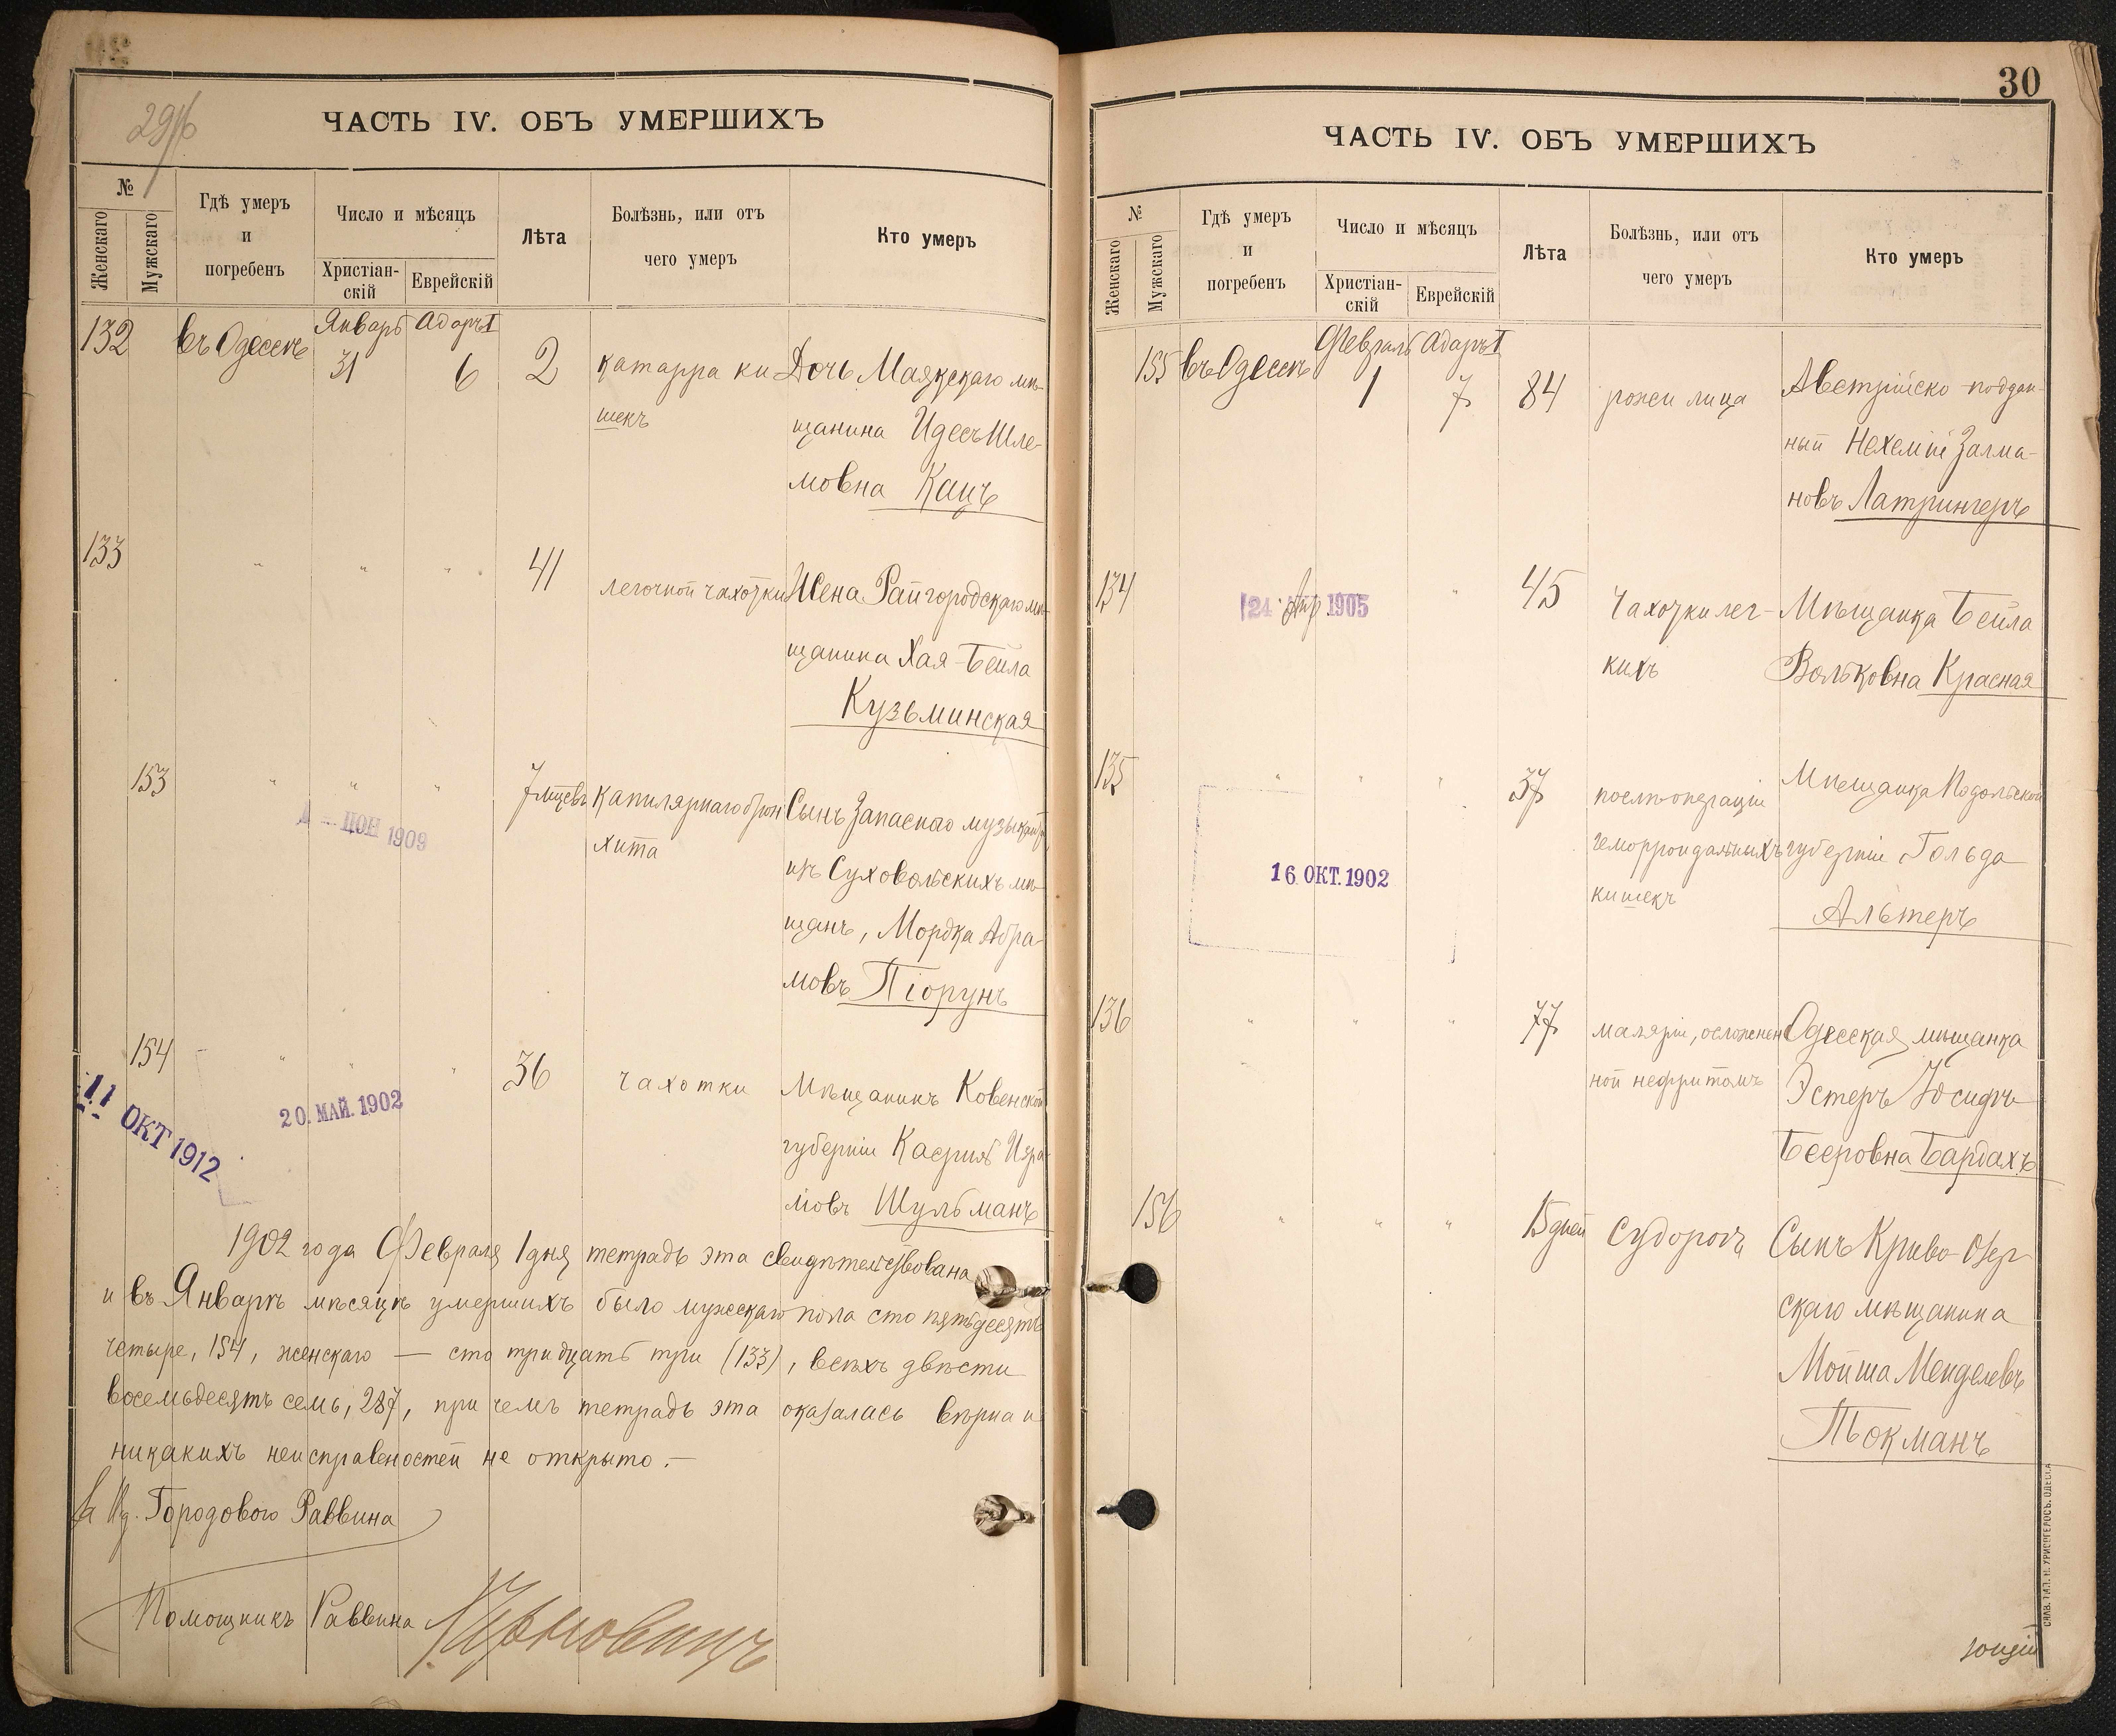 29/б
ЧАСТЬ IV. ОБЪ УМЕРШИХЪ
№
Женскаго
Мужскаго
Гдѣ умеръ
и
погребенъ
Число и мѣсяцъ
Христіан-
скій
Еврейскій
Лѣта
Болѣзнь, или отъ
чего умеръ
Кто умеръ
132 въ Одессѣ Январь 31 Адаръ I 6 2 катарра ки- Дочь Маякскаго мѣ-
шекъ щанина Идесъ Шле-
мовна Кацъ
133 " " " 41 легочной чахотки Жена Райгородскаго мѣ-
щанина Хая-Бейла
Кузьминская
153 " " " 7 мцевъ капилярнаго брон- Сынъ Запаснаго музыканта
хита изъ Суховольскихъ мѣ-
щанъ, Мордка Абра-
мовъ Піорунъ
1909
154 " " " 36 чахотки Мѣщанинъ Ковенской
губерніи Касріилъ
Шульманъ
11 ОКТ 1912
20. МАЙ. 1902
1902 года Февраля 1 дня тетрадь эта свидѣтельствована
и въ Январѣ мѣсяцѣ умершихъ было мужескаго пола сто пятьдесятъ
четыре, 154, женскаго — сто тридцать три (133), всѣхъ двѣсти
восемьдесятъ семь, 287, при чемъ тетрадь эта оказалась вѣрна и
никакихъ неисправностей не открыто.—
Городового Раввина
Помощникъ Раввина
30
ЧАСТЬ IV. ОБЪ УМЕРШИХЪ
№
Женскаго
Мужскаго
Гдѣ умеръ
и
погребенъ
Число и мѣсяцъ
Христіан-
скій
Еврейскій
Лѣта
Болѣзнь, или отъ
чего умеръ
Кто умеръ
155 въ Одессѣ Февраль 1 Адаръ I 7 84 рожи лица Австрійско-поддан-
ный Нехемій Залма-
новъ Латрингеръ
134 " 45 Чахотки лег- Мѣщанка Бейла
кихъ Вольковна Красная
24 1905
135 " " " 37 послѣ операціи Мѣщанка Подольской
геморроидальныхъ губерніи Гольда
кишекъ Альтеръ
16. ОКТ. 1902
136 " " " 77 маляріи, осложнен- Одесская мѣщанка
ной нефритомъ Эстеръ Іосифъ-
Бееровна Бардахъ
156 " " " 15 дней Судорогъ Сынъ Криво-Озер-
скаго мѣщанина
Мойша Менделевъ
Пьокманъ